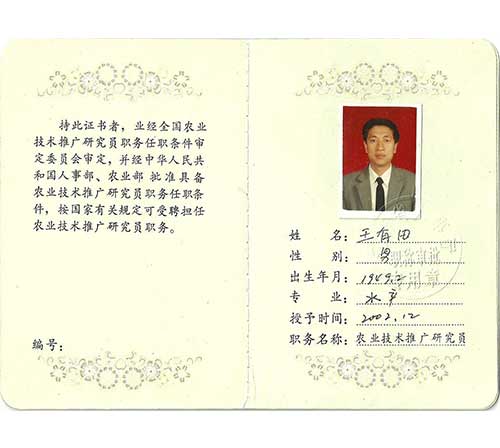 持此证书者，业经全国农业
技术推广研究员职务任职条件审
定委员会审定，并经中华人民共
和国人事部、农业部 批准具备
农业技术推广研究员职务任职条
件，按国家有关规定可受聘担任
农业技术推广研究员职务。
编号：
姓 名：王有田
性 别：男
出生年月：1949.2
专 业：水产
授予时间：2002.12
职务名称：农业技术推广研究员
职称审批
专用章